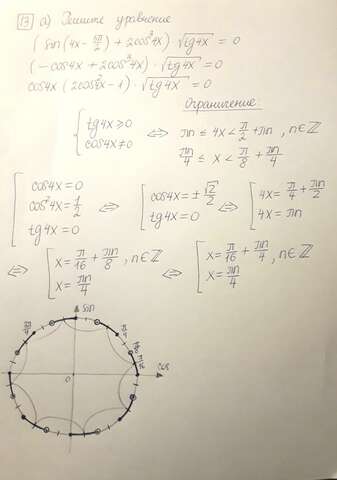 13 а) Решите уравнение
(sin(4x - 5π/2) + 2cos³4x) · √tg4x = 0
(-cos4x + 2cos³4x) · √tg4x = 0
cos4x (2cos²4x - 1) · √tg4x = 0
Ограничение:
{ tg4x ≥ 0
cos4x ≠ 0 ⇔ πn ≤ 4x < π/2 + πn, n∈ℤ
πn/4 ≤ x < π/8 + πn/4
[ cos4x = 0
cos²4x = 1/2
tg4x = 0
⇔ [ cos4x = ± √2/2
tg4x = 0
⇔ [ 4x = π/4 + πn/2
4x = πn
⇔ [ x = π/16 + πn/8, n∈ℤ
x = πn/4
⇔ [ x = π/16 + πn/4, n∈ℤ
x = πn/4
sin
cos
0